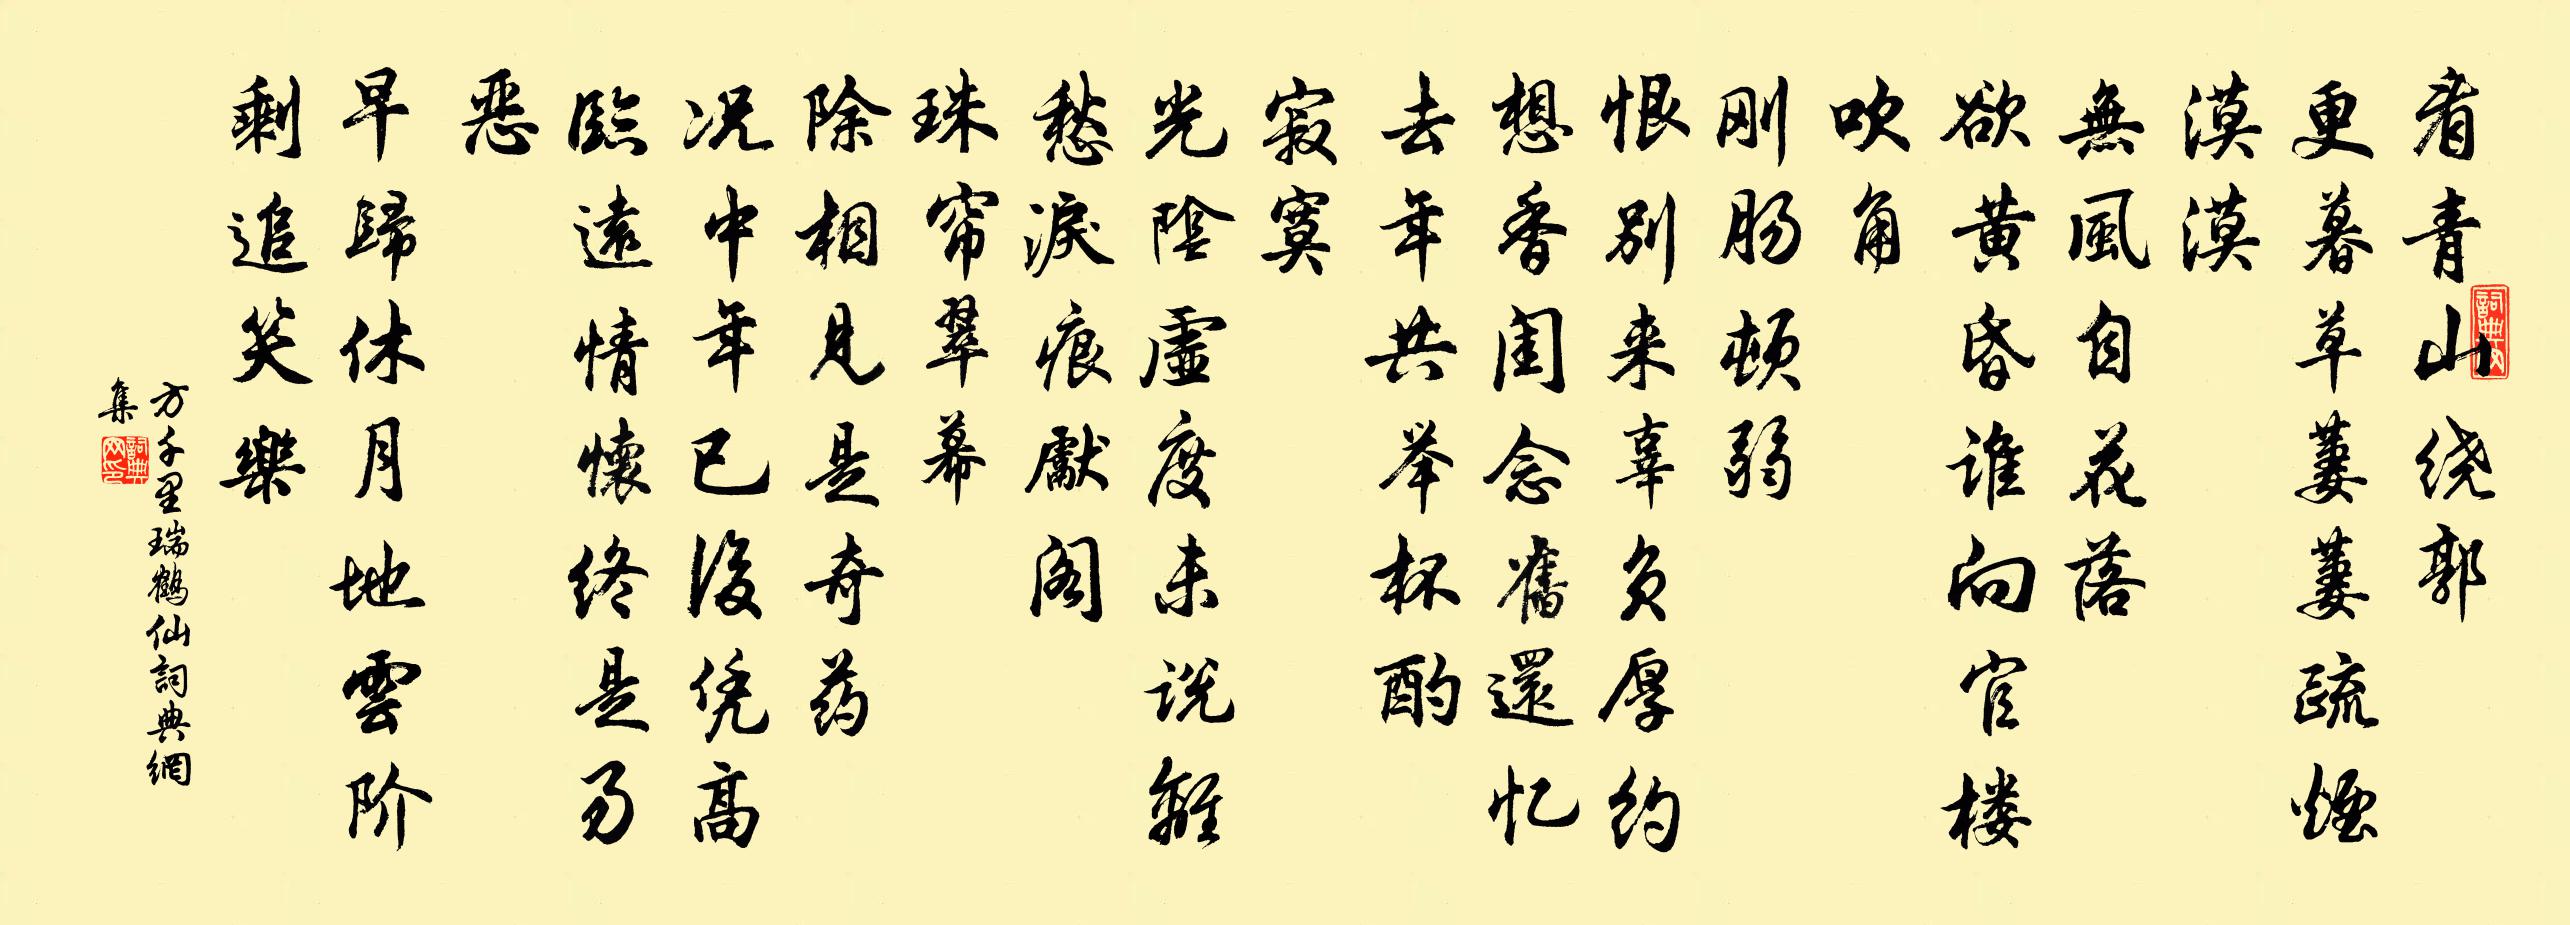 看青山绕郭
更暮草萋萋疏煙
漠漠
無風自花落
欲黄昏谁向官楼
吹角
刚肠顿弱
恨别来辜负厚约
想香闺念舊還忆
去年共举杯酌
寂寞
光陰虚度未说離
愁淚痕獻阁
珠帘翠幕
除相見是奇药
况中年已後凭高
臨遠情懷终是易
惡
早歸休月地雲阶
剩追笑樂
方千里瑞鶴仙詞典網
集